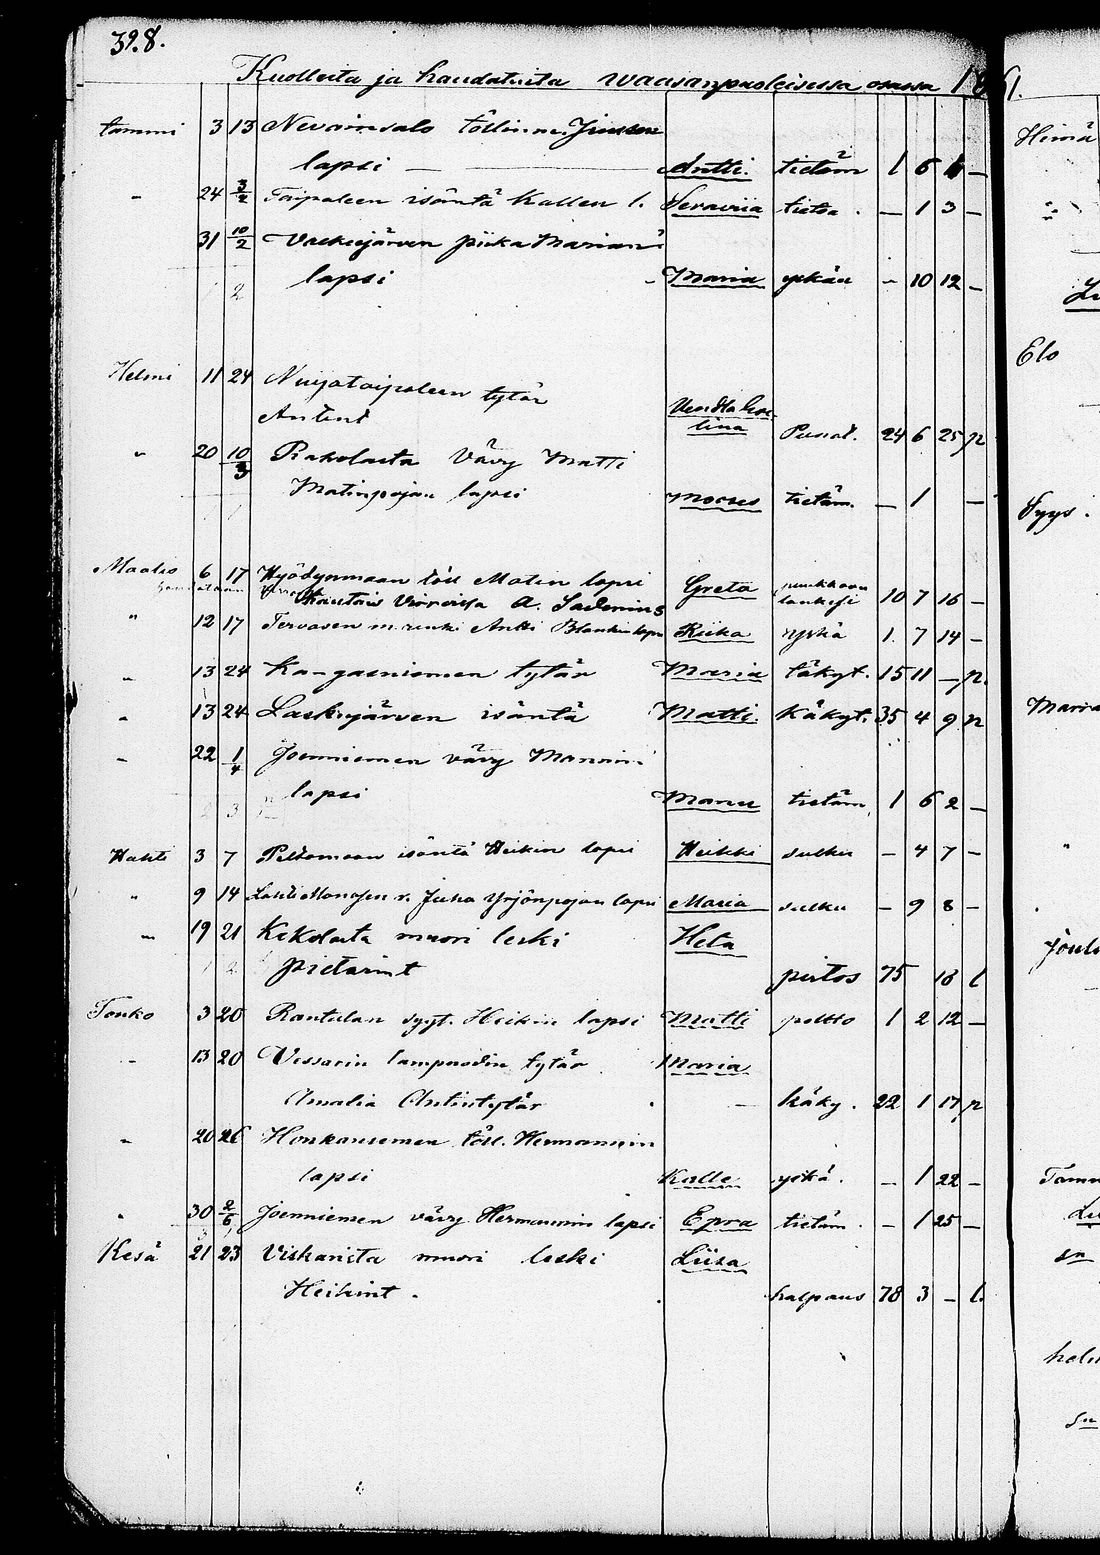 398.
Kuolleita ja haudatuita waasanpuoleisessa osassa 1861.
Tammi 3 13 Nevainsalo töllinm. Jussin
lapsi Antti. tietäm 1 6 –
" 24 3/2 Taipaleen isäntä Kallen l. Serawiia tietoa. – 1 3 –
31 10/2 Vaskejärven piika Marian
lapsi Maria yskän – 10 12 –
Helmi 11 24 Nuijataipaleen tytär
Antint Vendla
lina Punat. 24 6 25 p
" 20 10/3 Rakolasta Vävy Matti
Matinpojan lapsi Moeses tietäm. – 1 –
Maalis 6 17 Hyödynmaan töll Matin lapsi Greta
haudataan Virroilla A. 10 7 16 –
" 12 17 Tervasen m. renki Antti lapsi Riika yskä 1 7 14 –
" 13 24 Kangasniemen tytär Maria läkyt. 15 11 – p.
" 13 24 Laskejärven isäntä Matti. Käkyt. 35 4 9 p
" 22 1/4 Joenniemen vävy Mannin
lapsi Manu tietäm 1 6 2 –
Huhti 3 7 Peltomaan isäntä Heikin lapsi Heikki sulku – 4 7 –
" 9 14 Juha Yrjönpojan lapsi Maria sulku – 9 8 –
" 19 21 Kekolasta muori leski Heta
Pietarint pistos 75 18 l
Touko 3 20 Rantalan syyt. Heikin lapsi Matti poltto 1 2 12 –
" 13 20 Vessarin lampuodin tytär Maria
Amalia Antintytär – käky. 22 1 17 p
" 20 26 Honkaniemen töll. Hermannin
lapsi Kalle yskä. – 1 22 –
" 30 2/6 Joenniemen vävy Hermannin lapsi Epra tietäm. – 1 25 –
Kesä 21 23 Viskarista muori leski Liisa
Heikint. halpaus 78 3 – l.
Heinä
Elo
Syys.
Marra
Joulu
Tamm